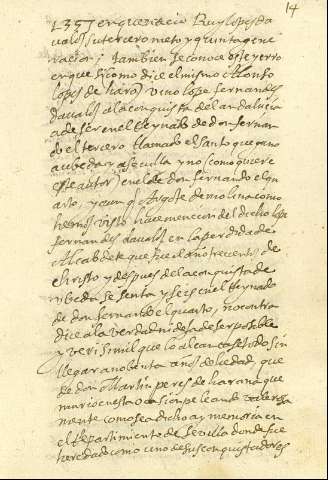 14
1357 en que nacio Ruy lopes da
valos su tercero nieto y quinta gene
racion; tambien se conoce este yerro
en que si como dice el mismo Alonso
lopes de haros vino lope fernandes
davalos a la conquista del andalucia
a de ser en el Reynado de don fernan
do el tercero llamado el santo que gano
a ubeda y a sevilla y no como quiere
este autor en el de don fernando el qu
arto, y aunq Argote de molina como
hemos visto hace mencion del dicho lope
fernandes davalos en la perdida de
Alcabdete que fue el año trecientos de
christo y despues de la conquista de
ubeda sesenta y seis en el Reynado
de don fernando el quarto, no contra
dice a la verdad ni deja de ser posible
y verisimil que lo alcansase todo sin
llegar a nobenta años de hedad, que
de don Martin peres de harana que
murio en esta ocasion peleando valerosa
mente como sea dicho ay memoria en
el Repartimiento de Sevilla donde fue
heredado como uno de sus conquistadores